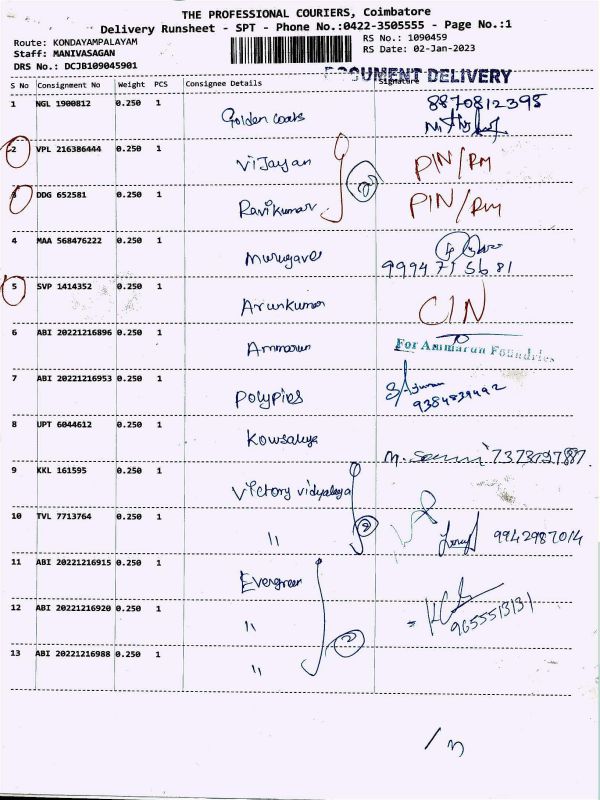 THE PROFESSIONAL COURIERS, Coimbatore
Delivery Runsheet - SPT - Phone No.:0422-3505555 - Page No.:1
Route: KONDAYAMPALAYAM
RS No.: 1090459
Staff: MANIVASAGAN
RS Date: 02-Jan-2023
DRS No.: DCJB109045901
DOCUMENT DELIVERY
S No Consignment No Weight PCS Consignee Details Signature
1 NGL 1900812 0.250 1 Golden coats 8870812395
2 VPL 216386444 0.250 1 Vijayan PIN/RM
DDG 652581 0.250 1 Ravikumar PIN/RM
2
4 MAA 568476222 0.250 1 Murugavel
9994715681
5 SVP 1414352 0.250 1 Arunkumar CIN
6 ABI 20221216896 0.250 1 Ammarun For Ammarun Foundries
7 ABI 20221216953 0.250 1 Polypips
9384829492
8 UPT 6044612 0.250 1 Kowsalya
9 KKL 161595 0.250 1 Victory vidyalaya
10 TVL 7713764 0.250 1 " 9942987014
11 ABI 20221216915 0.250 1 Evergreen
12 ABI 20221216920 0.250 1 " 9655513131
2
13 ABI 20221216988 0.250 1 "